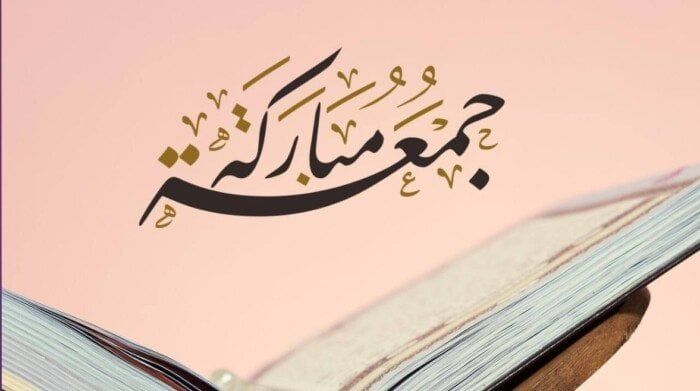 جمعة مباركة